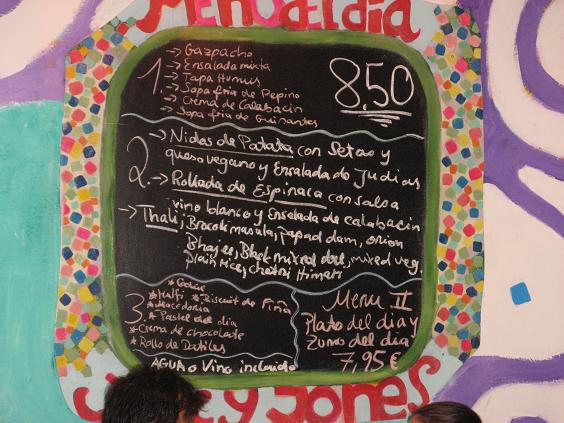 Menú del día
1. → Gazpacho
→ Ensalada mixta
→ Tapa Humus
→ Sopa fria de Pepino
→ Crema de Calabacin
→ Sopa fria de Guisantes
8,50
2. → Nidos de Patata con Setas y
queso vegano y Ensalada de Judias
→ Rollada de Espinaca con salsa
vino blanco y Ensalada de calabacin
→ Thali, papad dam, onion
Bhajee, Black mixed dal, mixed veg.
Plain rice,
3.
* Kulfi * Biscuit de Piña
* Macedonia
* Pastel del dia
* Crema de chocolate
* Rollo de Datiles
AGUA o Vino incluido
Menu II
Plato del dia y
Zumo del dia
7,95 €
y Jones